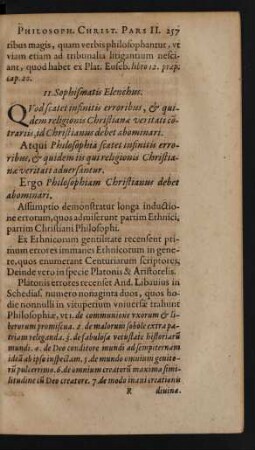 PHILOSOPH. CHRIST. PARS II. 257
ribus magis, quam verbis philosophantur, vt
viam etiam ad tribunalia litigantium nesci-
ant, quod habet ex Plat. Euseb. libro 12. præp.
cap. 20.
11. Sophismatis Elenchus.
QVod scatet infinitis erroribus, & qui-
dem religionis Christianæ veritati cō-
trariis, id Christianus debet abominari.
Atqui Philosophia scatet infinitis erro-
ribus, & quidem iis qui religionis Christia-
næ veritati aduersantur.
Ergo Philosophiam Christianus debet
abominari.
Assumptio demonstratur longa inductio-
ne errorum, quos admiserunt partim Ethnici,
partim Christiani Philosophi.
Ex Ethnicorum gentilitate recensent pri-
mùm errores immanes Ethnicorum in gene-
re, quos enumerant Centuriarum scriptores,
Deinde vero in specie Platonis & Aristotelis.
Platonis errores recenset And. Libauius in
Schedias. numero nonaginta duos, quos ho-
die nonnulli in vituperium vniuersæ trahunt
Philosophiæ, vt 1. de communione vxorum &
liberorum promiscua. 2. de malorum sobole extra pa-
triam releganda. 3. de fabulosa vetustate historiarū
mundi. 4. de Deo conditore mundi ad sempiternam
ideā ab ipso inspectam. 5. de mundo omnium genito-
rū pulcerrimo. 6. de omnium creatorū maxima simi-
litudine cū Deo creatore. 7. de modo inani creationis
R diuinæ.